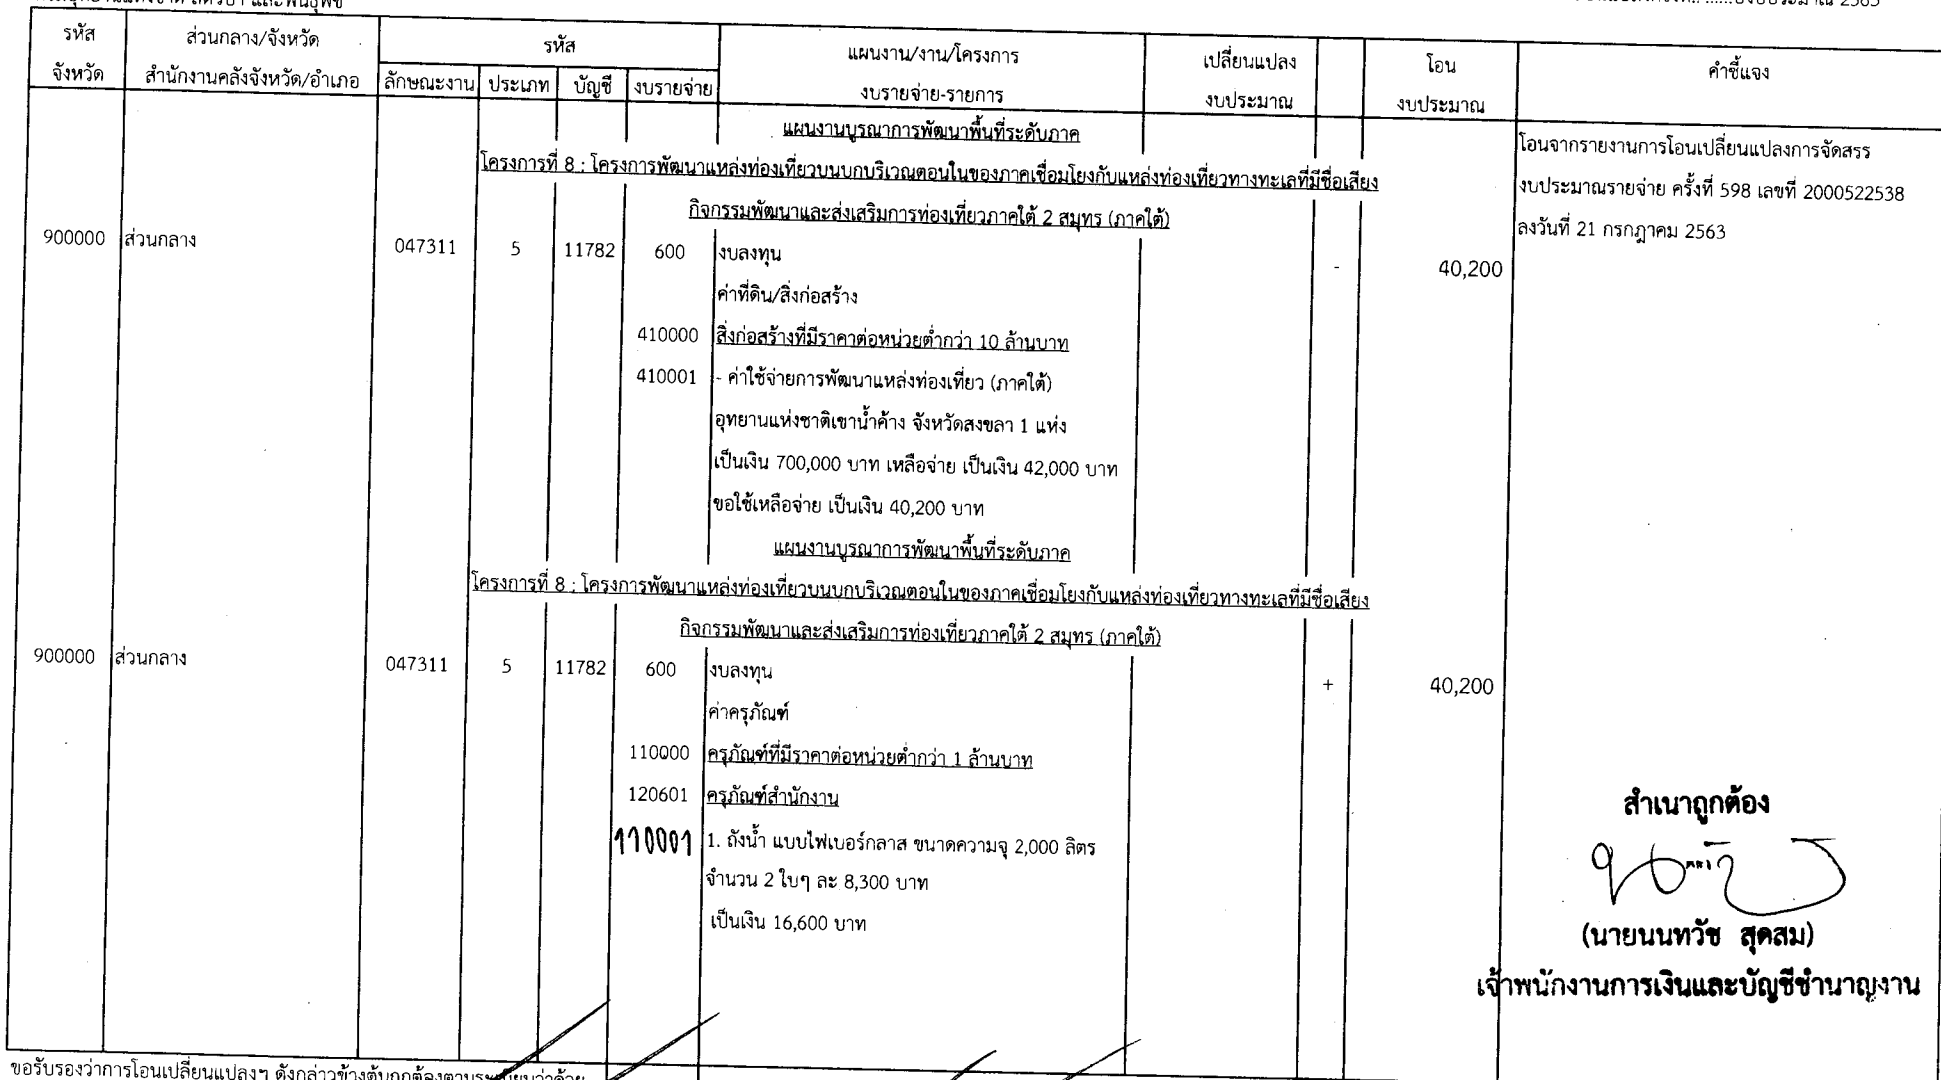 และพันธุ์พืช
งบประมาณ 2563
รหัส
จังหวัด
ส่วนกลาง/จังหวัด
สำนักงานคลังจังหวัด/อำเภอ
รหัส
ลักษณะงาน ประเภท บัญชี งบรายจ่าย
แผนงาน/งาน/โครงการ
งบรายจ่าย-รายการ
เปลี่ยนแปลง
งบประมาณ
โอน
งบประมาณ
คำชี้แจง
แผนงานบูรณาการพัฒนาพื้นที่ระดับภาค
โครงการที่ 8 : โครงการพัฒนาแหล่งท่องเที่ยวบนบกบริเวณตอนในของภาคเชื่อมโยงกับแหล่งท่องเที่ยวทางทะเลที่มีชื่อเสียง
กิจกรรมพัฒนาและส่งเสริมการท่องเที่ยวภาคใต้ 2 สมุทร (ภาคใต้)
โอนจากรายงานการโอนเปลี่ยนแปลงการจัดสรร
งบประมาณรายจ่าย ครั้งที่ 598 เลขที่ 2000522538
ลงวันที่ 21 กรกฎาคม 2563
900000 ส่วนกลาง 047311 5 11782 600 งบลงทุน - 40,200
ค่าที่ดิน/สิ่งก่อสร้าง
410000 สิ่งก่อสร้างที่มีราคาต่อหน่วยต่ำกว่า 10 ล้านบาท
410001 - ค่าใช้จ่ายการพัฒนาแหล่งท่องเที่ยว (ภาคใต้)
อุทยานแห่งชาติเขาน้ำค้าง จังหวัดสงขลา 1 แห่ง
เป็นเงิน 700,000 บาท เหลือจ่าย เป็นเงิน 42,000 บาท
ขอใช้เหลือจ่าย เป็นเงิน 40,200 บาท
แผนงานบูรณาการพัฒนาพื้นที่ระดับภาค
โครงการที่ 8 : โครงการพัฒนาแหล่งท่องเที่ยวบนบกบริเวณตอนในของภาคเชื่อมโยงกับแหล่งท่องเที่ยวทางทะเลที่มีชื่อเสียง
กิจกรรมพัฒนาและส่งเสริมการท่องเที่ยวภาคใต้ 2 สมุทร (ภาคใต้)
900000 ส่วนกลาง 047311 5 11782 600 งบลงทุน + 40,200
ค่าครุภัณฑ์
110000 ครุภัณฑ์ที่มีราคาต่อหน่วยต่ำกว่า 1 ล้านบาท
120601 ครุภัณฑ์สำนักงาน
110001 1. ถังน้ำ แบบไฟเบอร์กลาส ขนาดความจุ 2,000 ลิตร
จำนวน 2 ใบๆ ละ 8,300 บาท
เป็นเงิน 16,600 บาท
สำเนาถูกต้อง
(นายนนทวัช สุดสม)
เจ้าพนักงานการเงินและบัญชีชำนาญงาน
ขอรับรองว่าการโอนเปลี่ยนแปลงฯ ดังกล่าวข้างต้นถูกต้องตามระเบียบว่าด้วย